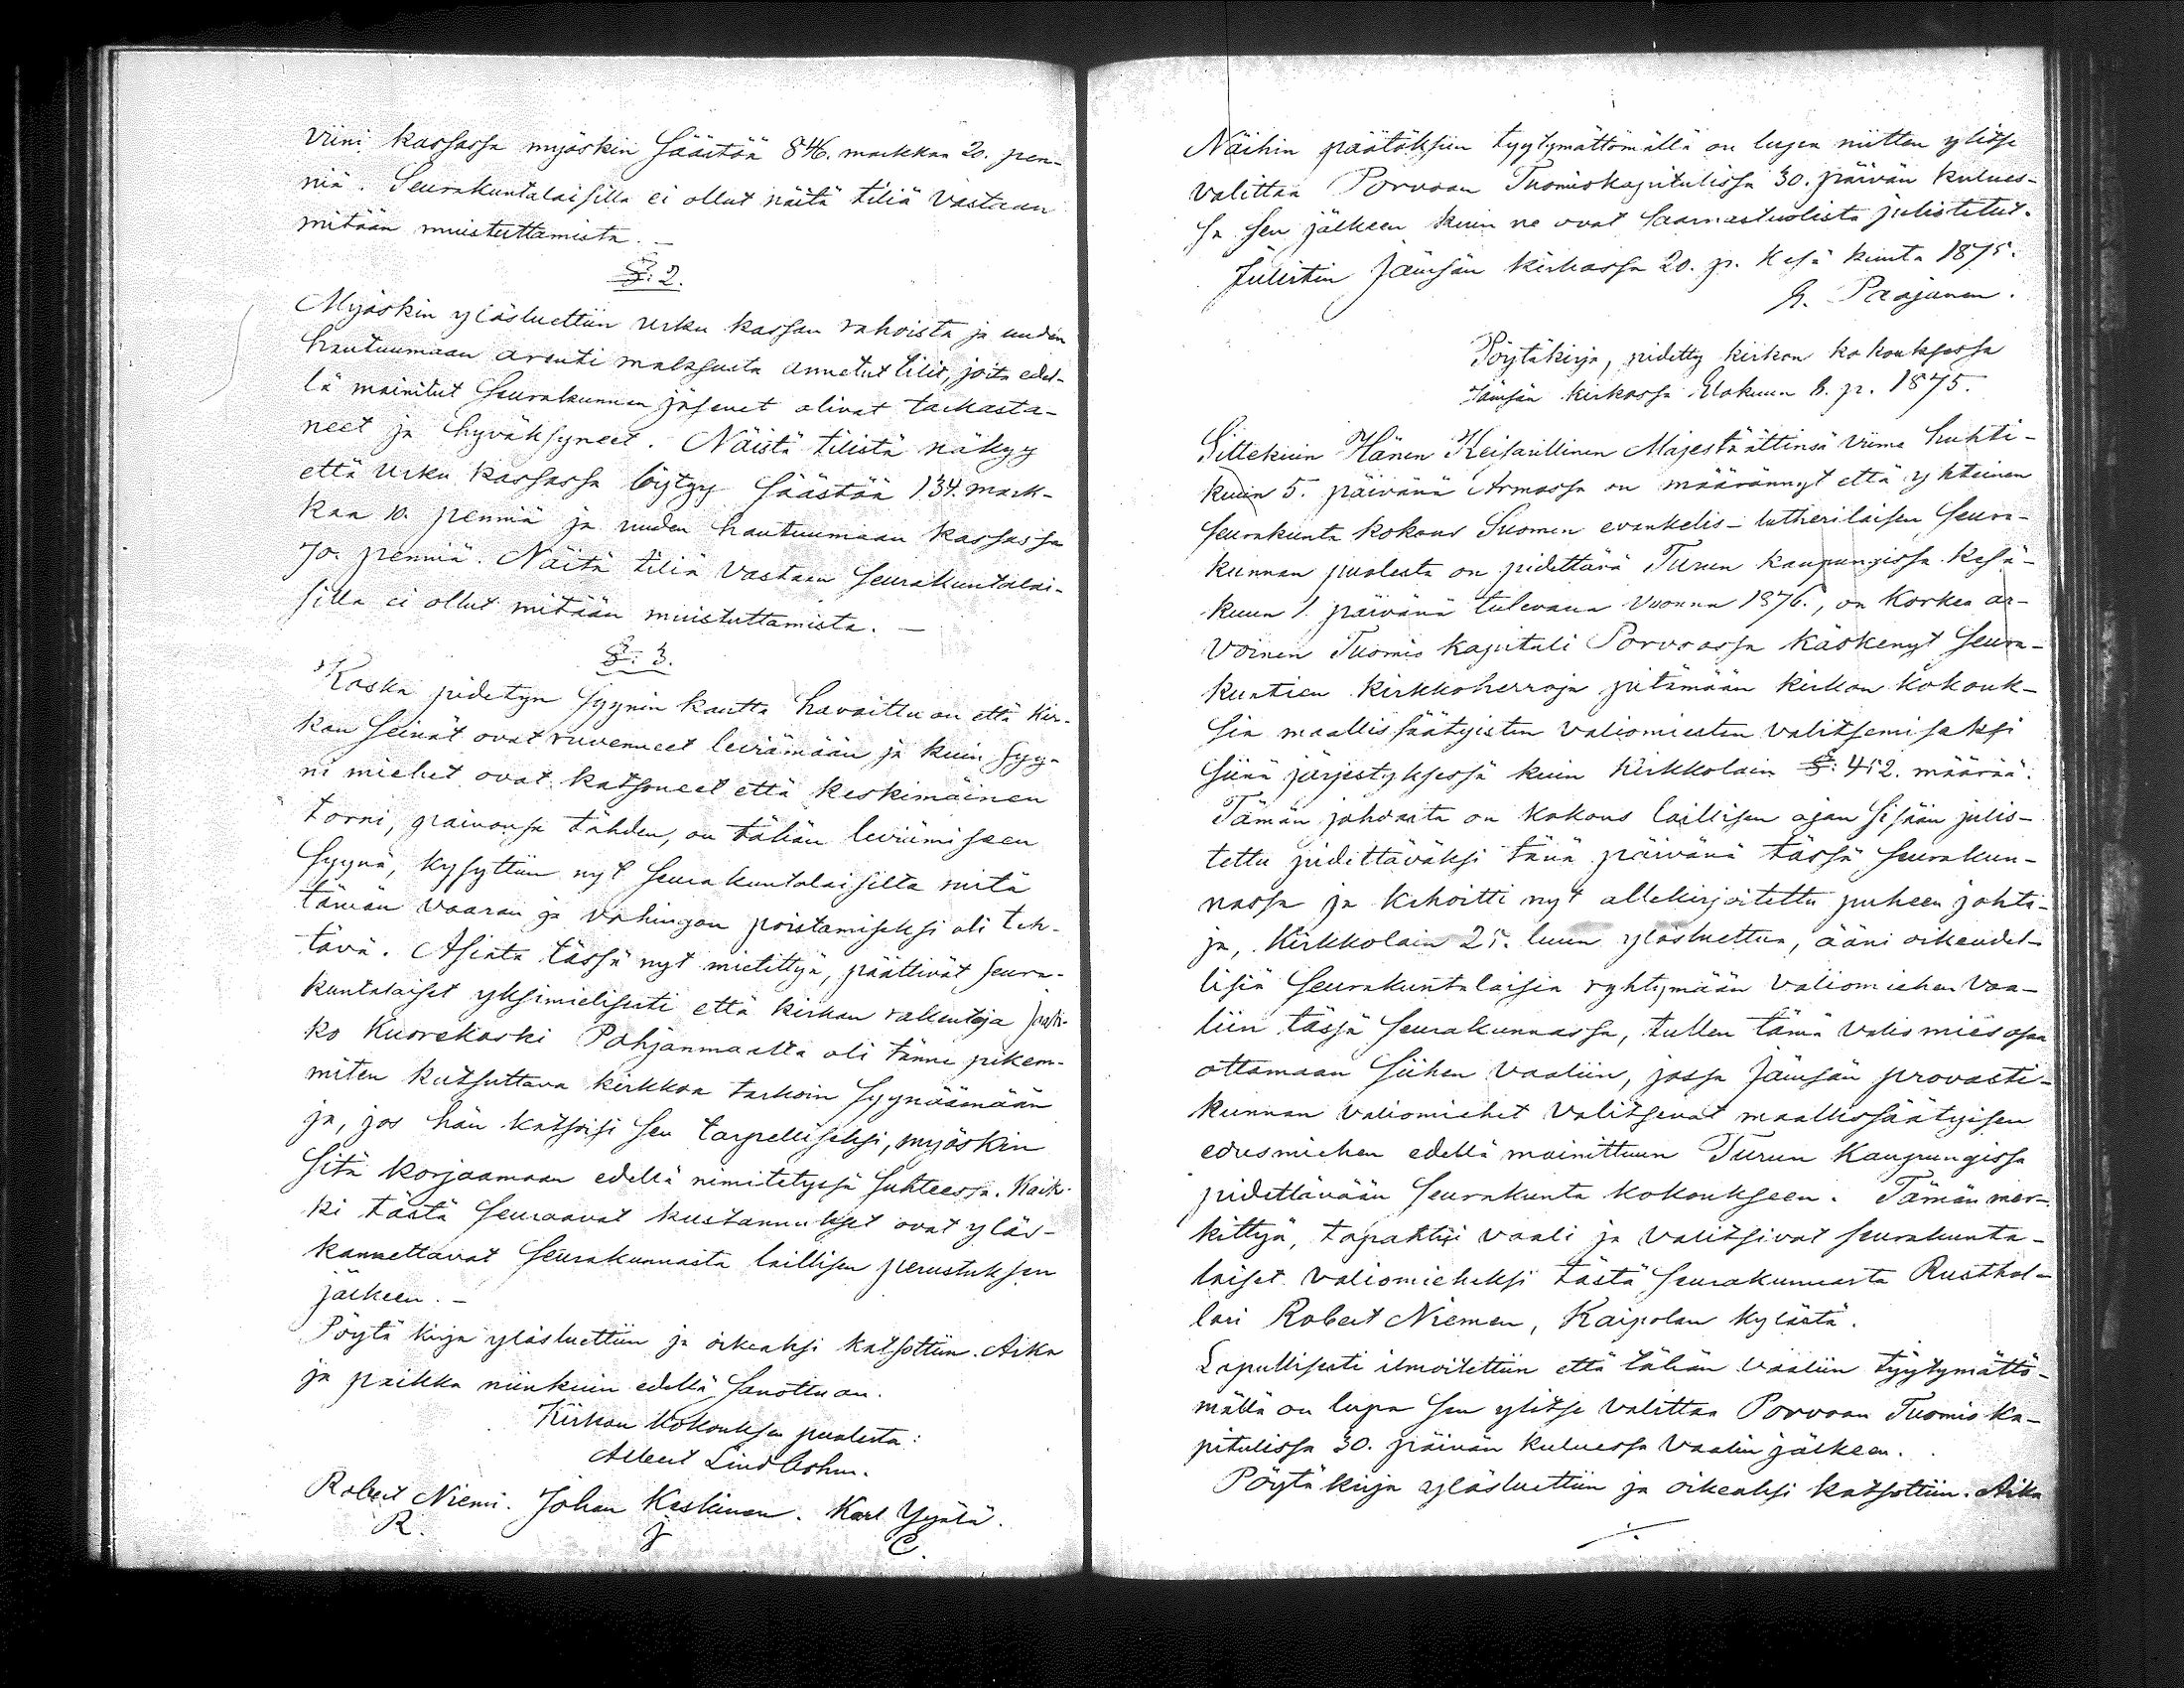 viini kassassa myöskin säästöä 846. markkaa 20. pen-
niä. Seurakuntalaisilla ei ollut näitä tiliä vastaan
mitään muistuttamista. —
§: 2.
Myöskin yläsluettiin urku kassan rahoista ja uuden
hautuumaan arenti maksusta annetut tilit, joita edel-
lä mainitut seurakunnan jäsenet olivat tarkasta-
neet ja hyväksyneet. Näistä tilistä näkyy
että urku kassassa löytyy säästöä 134. mark-
kaa 10. penniä ja uuden hautuumaan kassassa
70. penniä. Näitä tiliä vastaan seurakuntalai-
silla ei ollut mitään muistuttamista. —
§: 3.
Koska pidetyn syynin kautta havaittu on että kir-
kon seinät ovat ruvenneet leviämään ja kuin syy-
ni miehet ovat katsoneet että keskimäinen
torni, painonsa tähden, on tähän leviämiseen
syynä, kysyttiin nyt seurakuntalaisilta mitä
tämän vaaran ja vahingon poistamiseksi oli teh-
tävä. Asiata tässä nyt mietittyä, päättivät seura-
kuntalaiset yksimielisesti että kirkon rakentaja Jaak-
ko Kuorekoski Pohjanmaalta oli tänne pikem-
miten kutsuttava kirkkoa tarkoin syynäämään
ja, jos hän katsoisi sen tarpelliseksi, myöskin
sitä korjaamaan edellä nimitetyssä suhteessa. Kaik-
ki tästä seuraavat kustannukset ovat yläs-
kannettavat seurakunnasta laillisen perustuksen
jälkeen. —
Pöytä kirja yläsluettiin ja oikeaksi katsottiin. Aika
ja paikka niinkuin edellä sanottu on.
Kirkon kokouksen puolesta:
Albert Lindbohm.
Robert Niemi. Johan Keskinen. Karl Yijälä.
R. J C.
Näihin päätöksiin tyytymättömällä on lupa niitten ylitse
valittaa Porvoon Tuomiokapitulissa 30. päivän kulues-
sa sen jälkeen kuin ne ovat saarnastuolista julistetut.
Julistin Jämsän kirkossa 20. p. Kesä kuuta 1875.
G. Paajanen.
Pöytäkirja, pidetty kirkon kokouksessa
Jämsän kirkossa Elokuun 8. p. 1875.
Sittekuin Hänen Keisarillinen Majestäättinsä viime huhti-
kuun 5. päivänä Armossa on määrännyt että yhteinen
seurakunta kokous Suomen evankelis-lutherilaisen seura-
kunnan puolesta on pidettävä Turun kaupungissa kesä-
kuun 1. päivänä tulevana vuonna 1876., on korkea ar-
voinen Tuomio kapituli Porvoossa käskenyt seura-
kuntien kirkkoherroja pitämään kirkon kokouk-
sia maallissäätyisten valiomiesten valitsemiseksi
siinä järjestyksessä kuin Kirkkolain §: 452. määrää.
Tämän johdosta on kokous laillisen ajan sisään julis-
tettu pidettäväksi tänä päivänä tässä seurakun-
nassa ja kehoitti nyt allekirjoitettu puheen johta-
ja, Kirkkolain 25. luun yläsluettua, ääni oikeudel-
lisia seurakuntalaisia ryhtymään valiomiehen vaa-
liin tässä seurakunnassa, tullen tämä valiomies osaa
ottamaan siihen vaaliin, jossa Jämsän provasti-
kunnan valiomiehet valitsevat maallissäätyisen
edusmiehen edellä mainittuun Turun kaupungissa
pidettävään seurakunta kokoukseen. Tämän mer-
kittyä, tapahtui vaali ja valitsivat seurakunta-
laiset valiomieheksi tästä seurakunnasta Rusthol-
lari Robert Niemen, Kaipolan kylästä.
Lopullisesti ilmoitettiin että tähän vaaliin tyytymättö-
mällä on lupa sen ylitse valittaa Porvoon Tuomio ka-
pitulissa 30. päivän kuluessa vaalin jälkeen.
Pöytäkirja yläsluettiin ja oikeaksi katsottiin. Aika